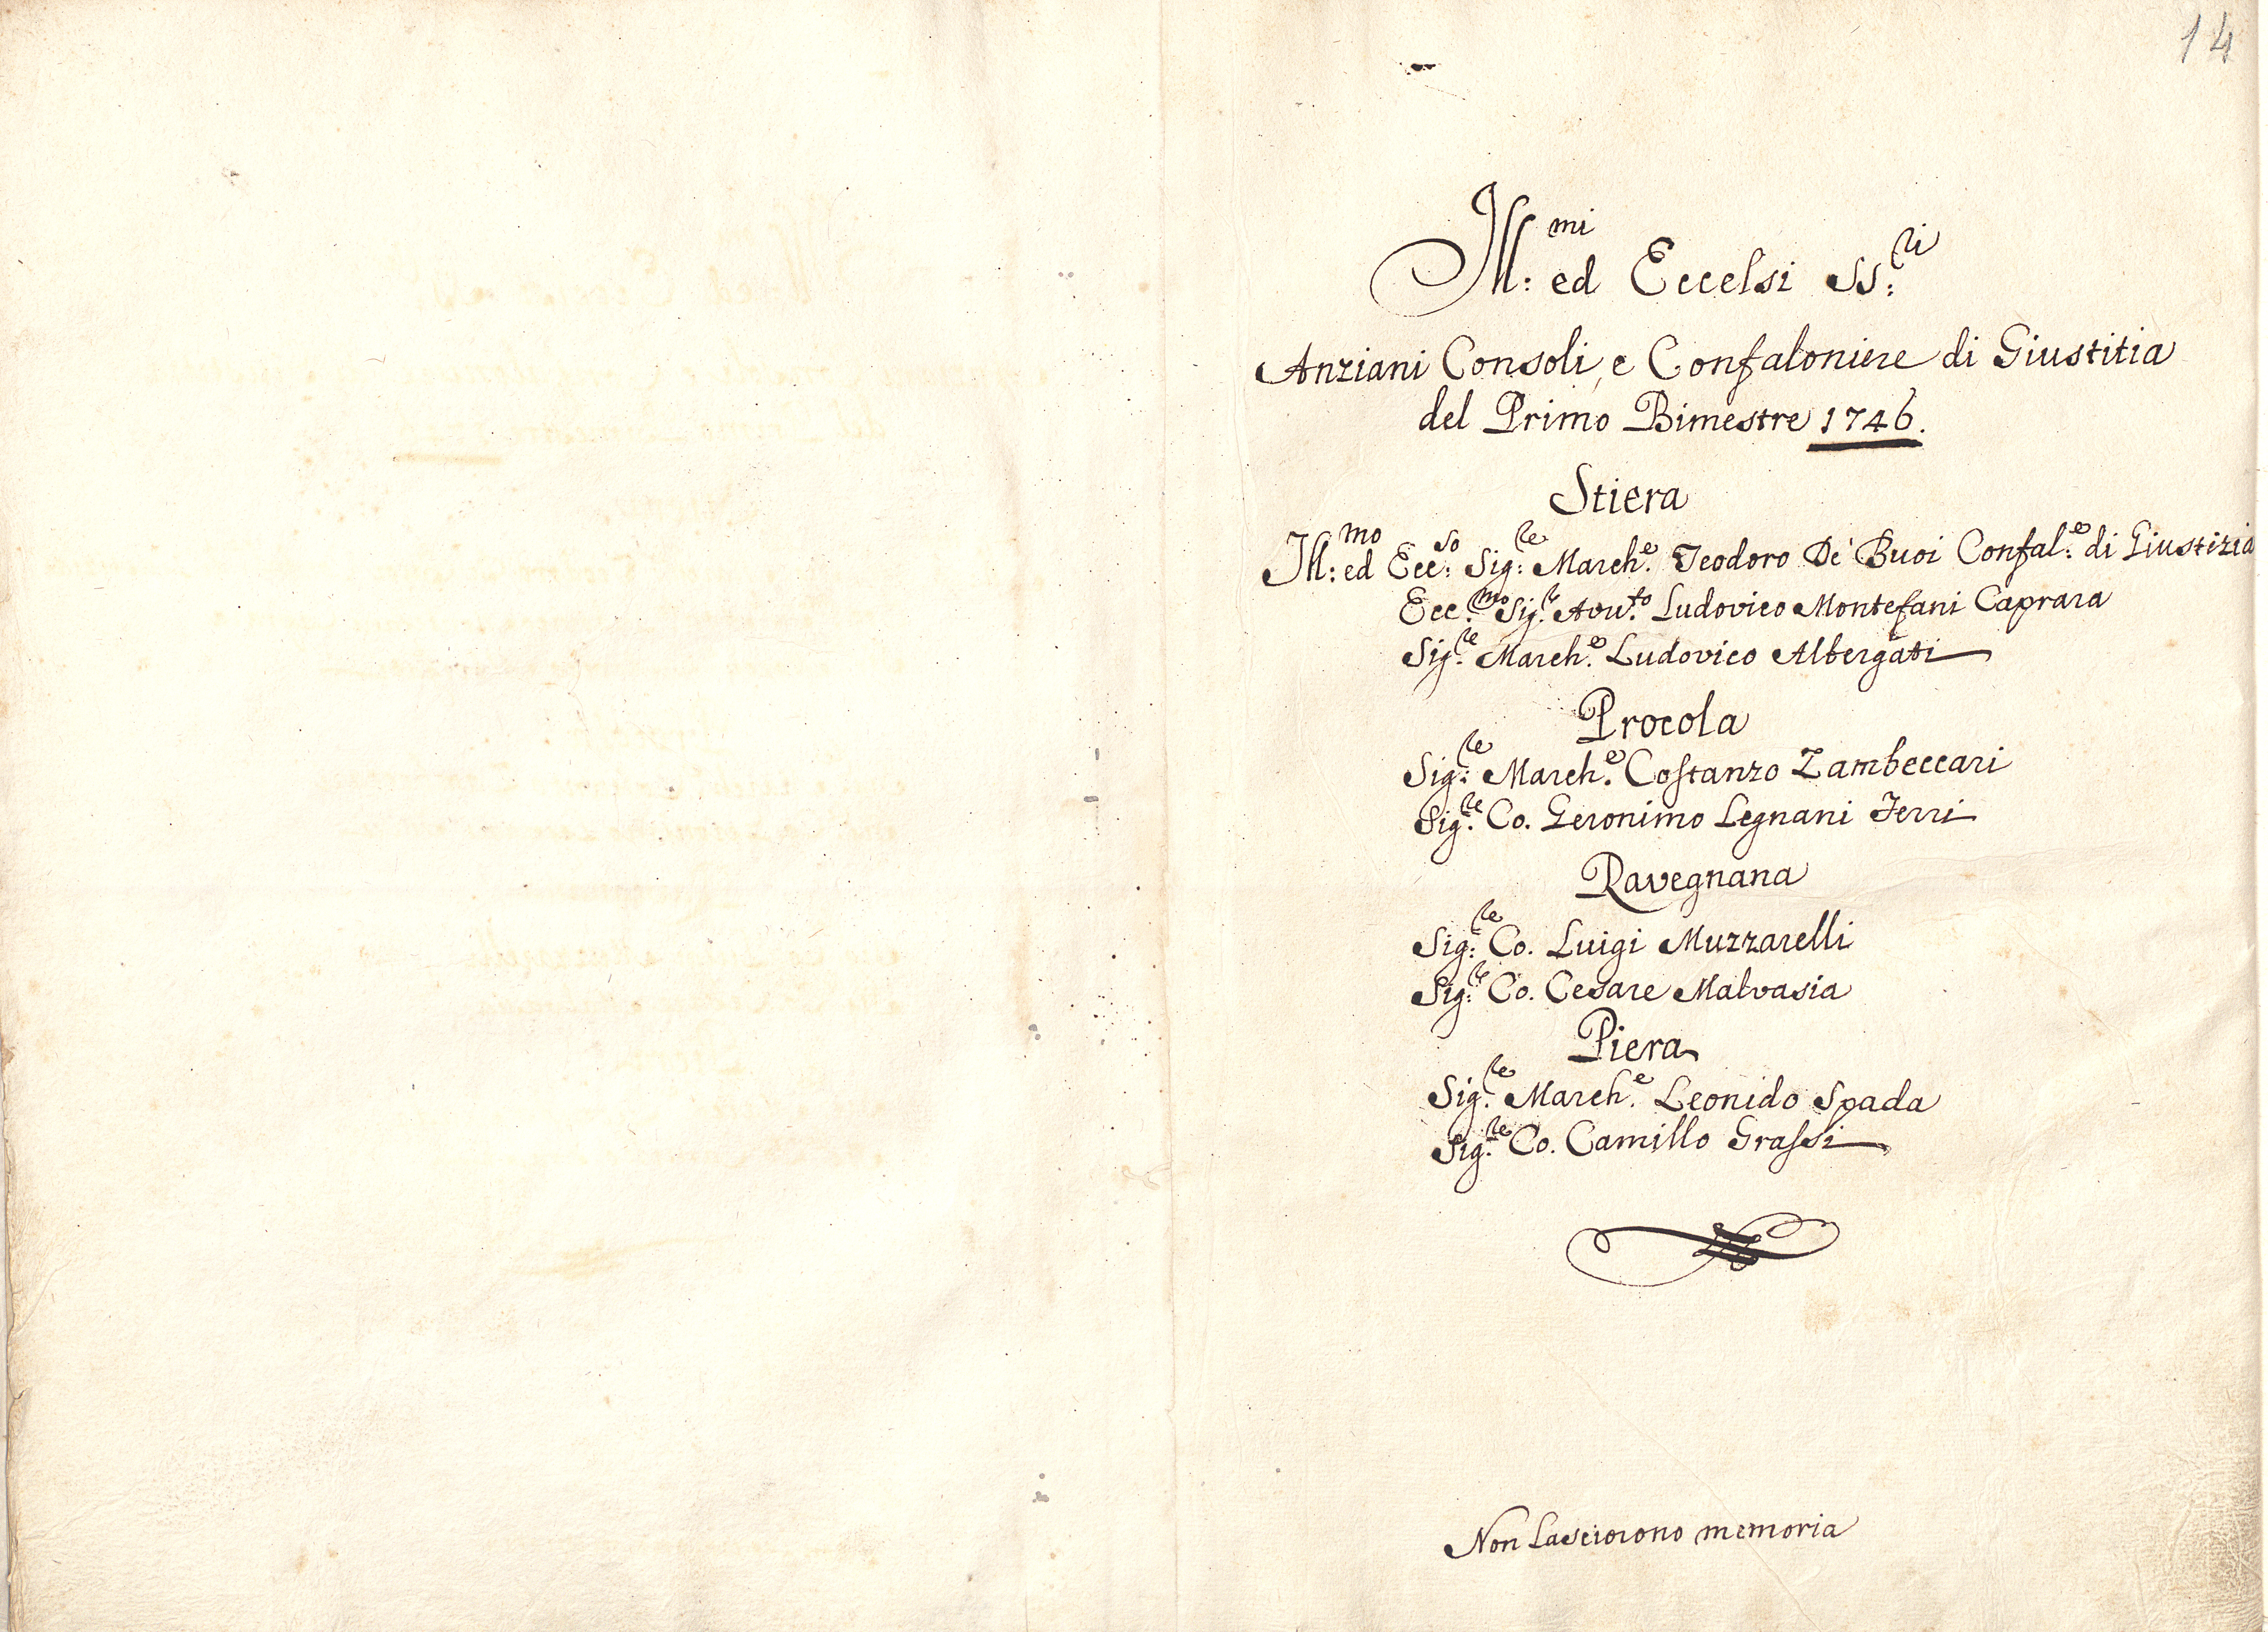 14
Ill:mi ed Eccelsi SS:ri
Anziani Consoli, e Confaloniere di Giustitia
del Primo Bimestre 1746.
Stiera
Ill:mo ed Ecc:so Sig:re March.e Teodoro De' Buoi Confal:e di Giustizia
Ecc.mo Sig.r Avv.to Ludovico Montefani Caprara
Sig.re March.e Ludovico Albergati
Procola
Sig:re March.e Costanzo Zambeccari
Sig.re Co. Geronimo Legnani Ferri
Ravegnana
Sig:re Co. Luigi Muzzarelli
Sig:re Co. Cesare Malvasia
Piera
Sig.re March.e Leonido Spada
Sig.re Co. Camillo Grassi
Non Lasciorono memoria